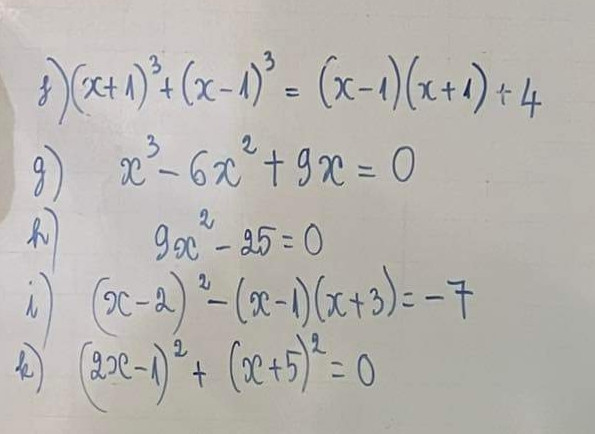 f) (x+1)³ + (x-1)³ = (x-1)(x+1) + 4
g) x³ - 6x² + 9x = 0
h) 9x² - 25 = 0
i) (x-2)² - (x-1)(x+3) = -7
k) (2x-1)² + (x+5)² = 0